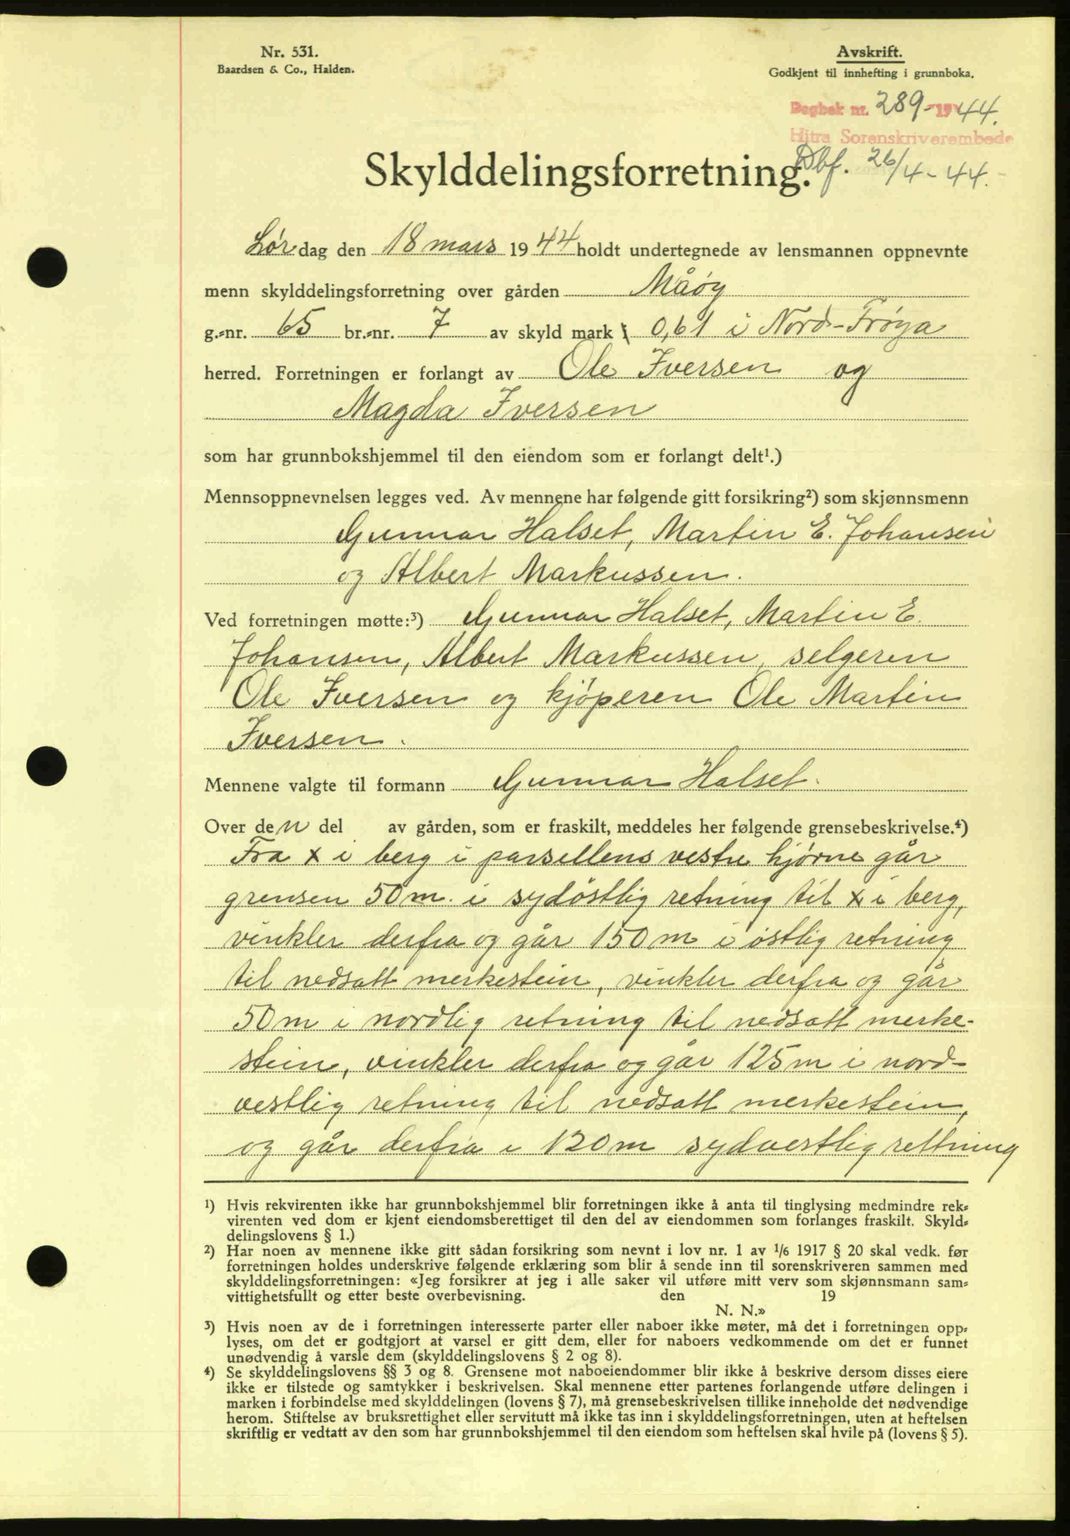 Nr. 531.
Baardsen & Co., Halden.
Avskrift.
Godkjent til innhefting i grunnboka.
Dagbok nr. 289-1944.
Hitra Sorenskriverembede
Dbf. 26/4-44.
Skylddelingsforretning.
Lørdag den 18 mars 1944 holdt undertegnede av lensmannen oppnevnte
menn skylddelingsforretning over gården Måøy
g.-nr. 65 br.-nr. 7 av skyld mark 0,61 i Nord-Frøya
herred. Forretningen er forlangt av Ole Iversen og
Magda Iversen
som har grunnbokshjemmel til den eiendom som er forlangt delt¹.)
Mennsoppnevnelsen legges ved. Av mennene har følgende gitt forsikring²) som skjønnsmenn
Gunnar Halset, Martin E. Johansen
og Albert Markussen.
Ved forretningen møtte:³) Gunnar Halset, Martin E.
Johansen, Albert Markussen, selgeren
Ole Iversen og kjöperen Ole Martin
Iversen.
Mennene valgte til formann Gunnar Halset.
Over den del av gården, som er fraskilt, meddeles her følgende grensebeskrivelse.⁴)
Fra x i berg i parsellens vestre hjørne går
grensen 50 m. i sydöstlig retning til x i berg,
vinkler derfra og går 150 m i östlig retning
til nedsatt merkestein, vinkler derfra og går
50 m i nordlig retning til nedsatt merke-
stein, vinkler derfra og går 125 m i nord-
vestlig retning til nedsatt merkestein,
og går derfra i 120 m sydvestlig rettning
¹) Hvis rekvirenten ikke har grunnbokshjemmel blir forretningen ikke å anta til tinglysing medmindre rek-
virenten ved dom er kjent eiendomsberettiget til den del av eiendommen som forlanges fraskilt. Skyld-
delingslovens § 1.)
²) Har noen av mennene ikke gitt sådan forsikring som nevnt i lov nr. 1 av 1/6 1917 § 20 skal vedk. før
forretningen holdes underskrive følgende erklæring som blir å sende inn til sorenskriveren sammen med
skylddelingsforretningen: «Jeg forsikrer at jeg i alle saker vil utføre mitt verv som skjønnsmann sam-
vittighetsfullt og etter beste overbevisning. den 19
N. N.»
³) Hvis noen av de i forretningen interesserte parter eller naboer ikke møter, må det i forretningen opp-
lyses, om det er godtgjort at varsel er gitt dem, eller for naboers vedkommende om det er funnet
unødvendig å varsle dem (skylddelingslovens § 2 og 8).
⁴) Se skylddelingslovens §§ 3 og 8. Grensene mot naboeiendommer blir ikke å beskrive dersom disses eiere
ikke er tilstede og samtykker i beskrivelsen. Skal mennene etter partenes forlangende utføre delingen i
marken i forbindelse med skylddelingen (lovens § 7), må grensebeskrivelsen tillike inneholde det nødvendige
herom. Stiftelse av bruksrettighet eller servitutt må ikke tas inn i skylddelingsforretningen, uten at heftelsen
skriftlig er vedtatt av den som har grunnbokshjemmel til den eiendom som heftelsen skal hvile på (lovens § 5).